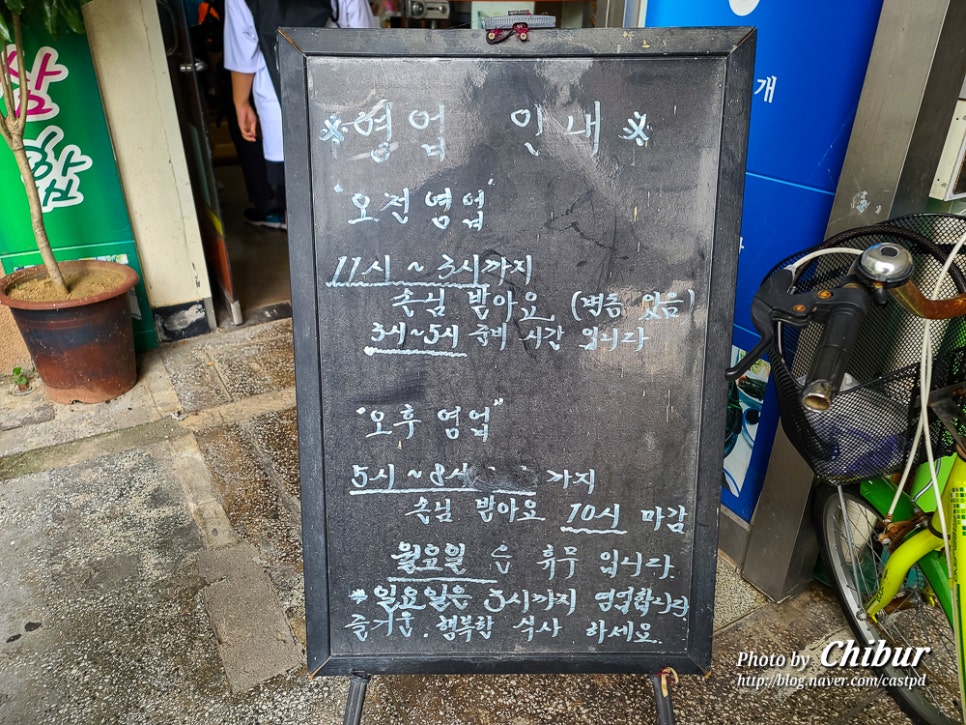 삼
상회
개
*영업 안내*
"오전 영업"
11시 ~ 3시까지
손님 받아요 (변동 있음)
3시~5시 준비 시간 입니다
"오후 영업"
5시 ~ 8시 까지
손님 받아요 10시 마감
월요일 은 휴무 입니다.
*일요일은 3시까지 영업합니다
즐거운. 행복한 식사 하세요.
Photo by Chibur
http://blog.naver.com/castpd